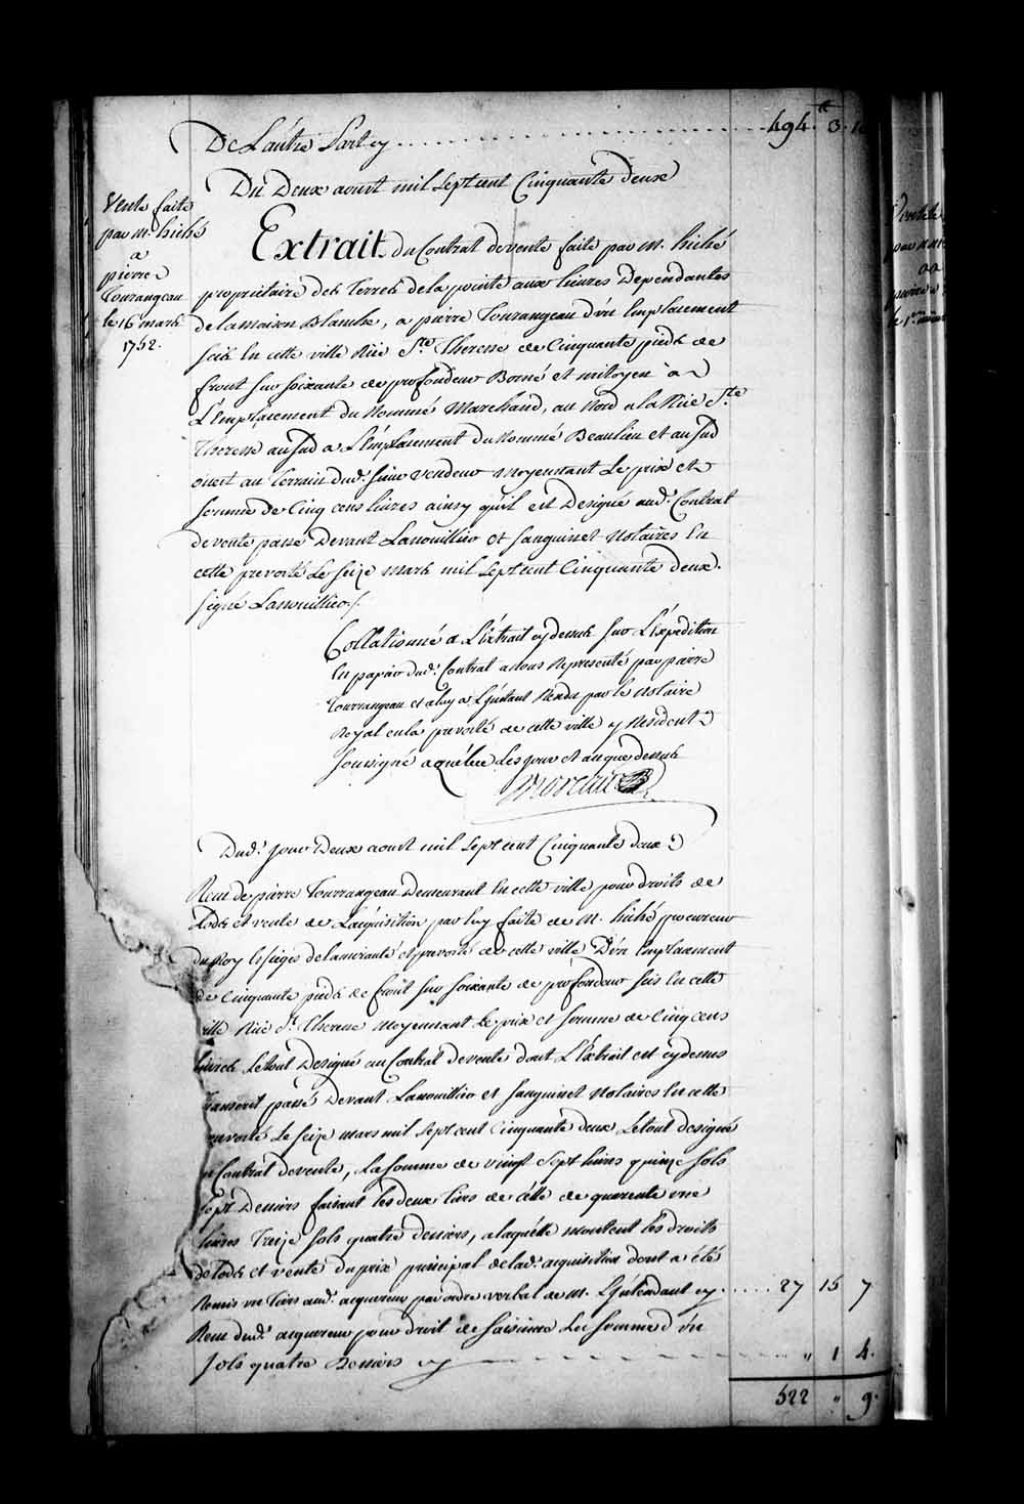 De L'autre Part cy ........ 494.tt 3. 10
Du Deux aoust mil Sept cent Cinquante deux
Vente faite
par m. hiché
a
pierre
Tourangeau
le 16 mars
1752.
Extrait du Contrat de vente faite par M. hiché
proprietaire des Terres de la pointe aux lievres Dependantes
de la maison Blanche, a pierre Tourangeau d'un Emplacement
scis En cette ville Rüe Ste. Therese de Cinquante pieds de
front sur soixante de profondeur Borné et mitoyen a
L'Emplacement du Nommé Marchand, au Nord a la Rüe Ste.
Therese au sud a L'Emplacement du Nommé Beaulieu et au sud
ouest au Terrain dud. sieur vendeur Moyennant Le prix et
somme de Cinq cens livres ainsy qu'il est Designé aud. Contrat
de vente passé Devant Lanouillier et Sanguinet Notaires En
cette prevosté Le seize mars mil Sept cent Cinquante deux.
signé Lanouillier ./.
Collationné a L'Extrait cy dessus sur L'Expedition
En papier dud. Contrat a nous Representé par pierre
Tourrangeau et a luy a L'jnstant Rendu par le Notaire
Royal en la prevosté de cette ville y Resident
soussigné a quebec Les jour et an que dessus
Dud. jour Deux aoust mil Sept cent Cinquante deux
Receu de pierre Tourrangeau Demeurant En cette ville pour droits de
Lods et vente de L'acquisition par luy faite de M. hiché procureur
du Roy Es sieges de l'amirauté et prevosté de cette ville D'un Emplacement
de Cinquante pieds de front sur soixante de profondeur scis En cette
ville Rüe Ste. Therese Moyennant Le prix et somme de Cinq cens
livres Le tout Designé au Contrat de vente dont L'Extrait est cy dessus
transcrit passé Devant Lanouillier et Sanguinet Notaires En cette
prevosté Le seize mars mil Sept cent Cinquante deux Le tout designé
Contrat de vente, La somme de vingt Sept livres quinze sols
sept Deniers faisant les deux tiers de celle de quarente une
livres Treize sols quatre deniers, a laquelle montent les droits
de lods et vente du prix principal de lad. acquisition dont a été
Remis un tiers aud. acquereur par ordre verbal de M. L'jntendant cy ..... 27 15 7
Receu dud. acquereur pour droit de saisinne La somme d'un
sols quatre Deniers cy " 1 4.
522 " 9.